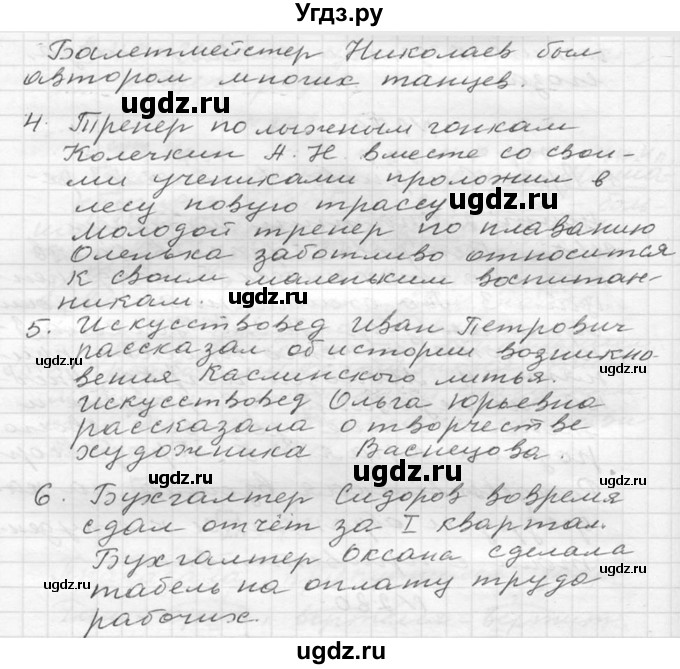 Угдз.ру
Балетмейстер Николаев был
автором многих танцев.
ugdz.ru
4. Тренер по лыжным гонкам
Колечкин А. Н. вместе со свои-
ми учениками проложил в
лесу новую трассу
ugdz.ru
Молодой тренер по плаванию
Оленька заботливо относится
к своим маленьким воспитан-
никам.
ugdz.ru
5. Искусствовед Иван Петрович
рассказал об истории возникно-
ugdz.ru
ugdz.ru
вения Каслинского литья.
Искусствовед Ольга Юрьевна
рассказала о творчестве
художника Васнецова.
ugdz.ru
ugdz.ru
6. Бухгалтер Сидоров вовремя
сдал отчёт за I квартал.
Бухгалтер Оксана сделала
ugdz.ru
табель на оплату трудо
ugdz.ru
рабочих.
ugdz.ru
ugdz.ru